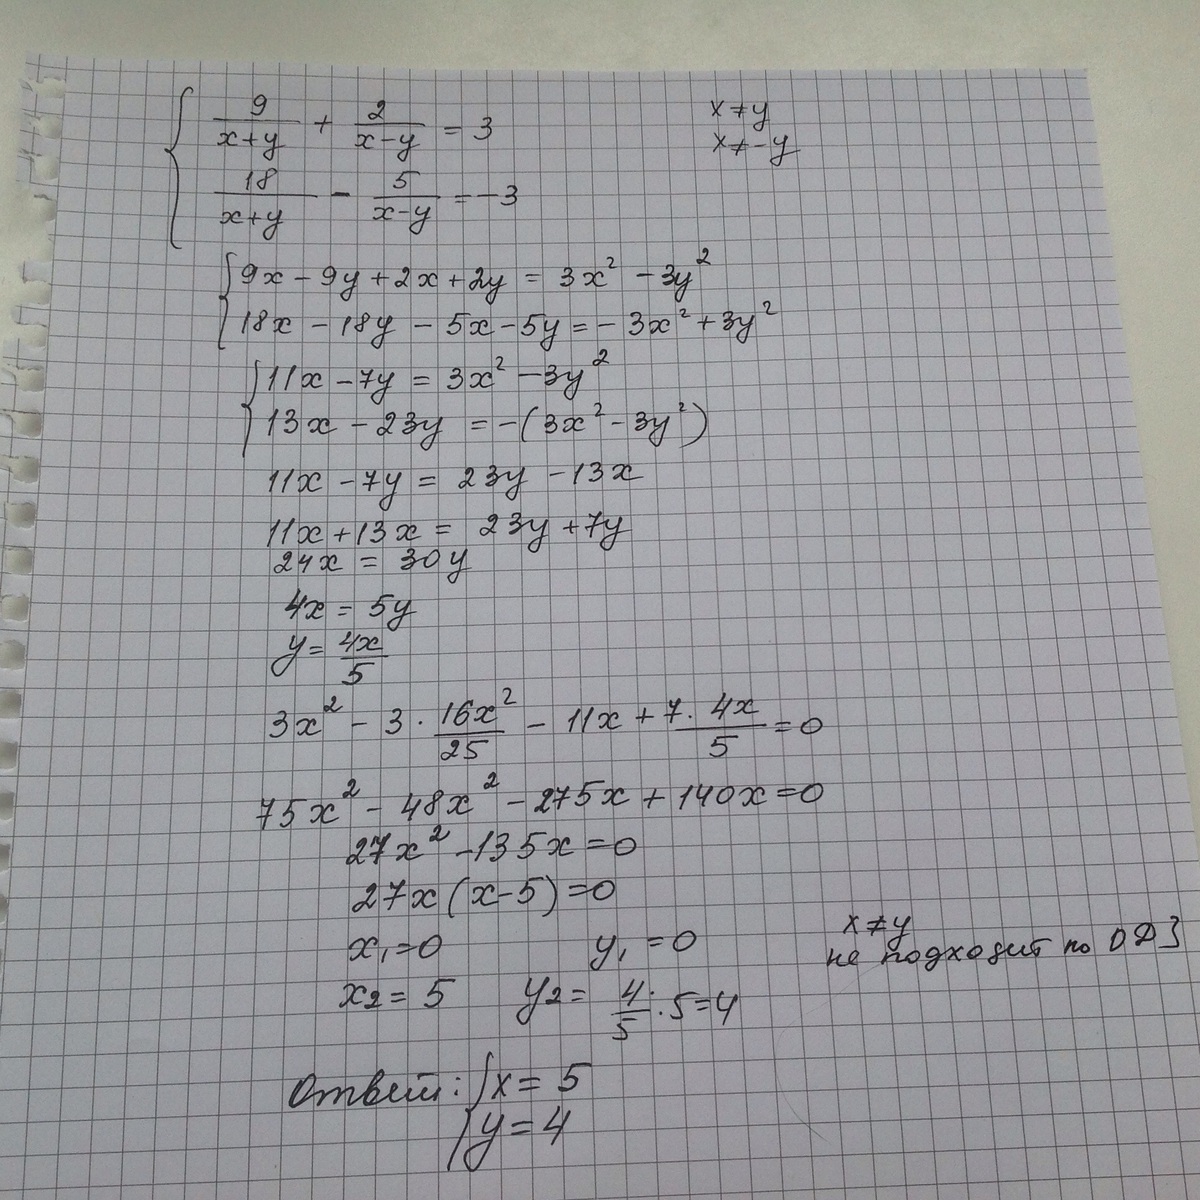 9/(x+y) + 2/(x-y) = 3 x ≠ y
x ≠ -y
18/(x+y) - 5/(x-y) = -3
9x - 9y + 2x + 2y = 3x² - 3y²
18x - 18y - 5x - 5y = -3x² + 3y²
11x - 7y = 3x² - 3y²
13x - 23y = -(3x² - 3y²)
11x - 7y = 23y - 13x
11x + 13x = 23y + 7y
24x = 30y
4x = 5y
y = 4x/5
3x² - 3 · 16x²/25 - 11x + 7 · 4x/5 = 0
75x² - 48x² - 275x + 140x = 0
27x² - 135x = 0
27x(x-5) = 0
x₁ = 0 y₁ = 0 x ≠ y
не подходит по ОДЗ
x₂ = 5 y₂ = 4/5 · 5 = 4
Ответ: { x = 5
y = 4